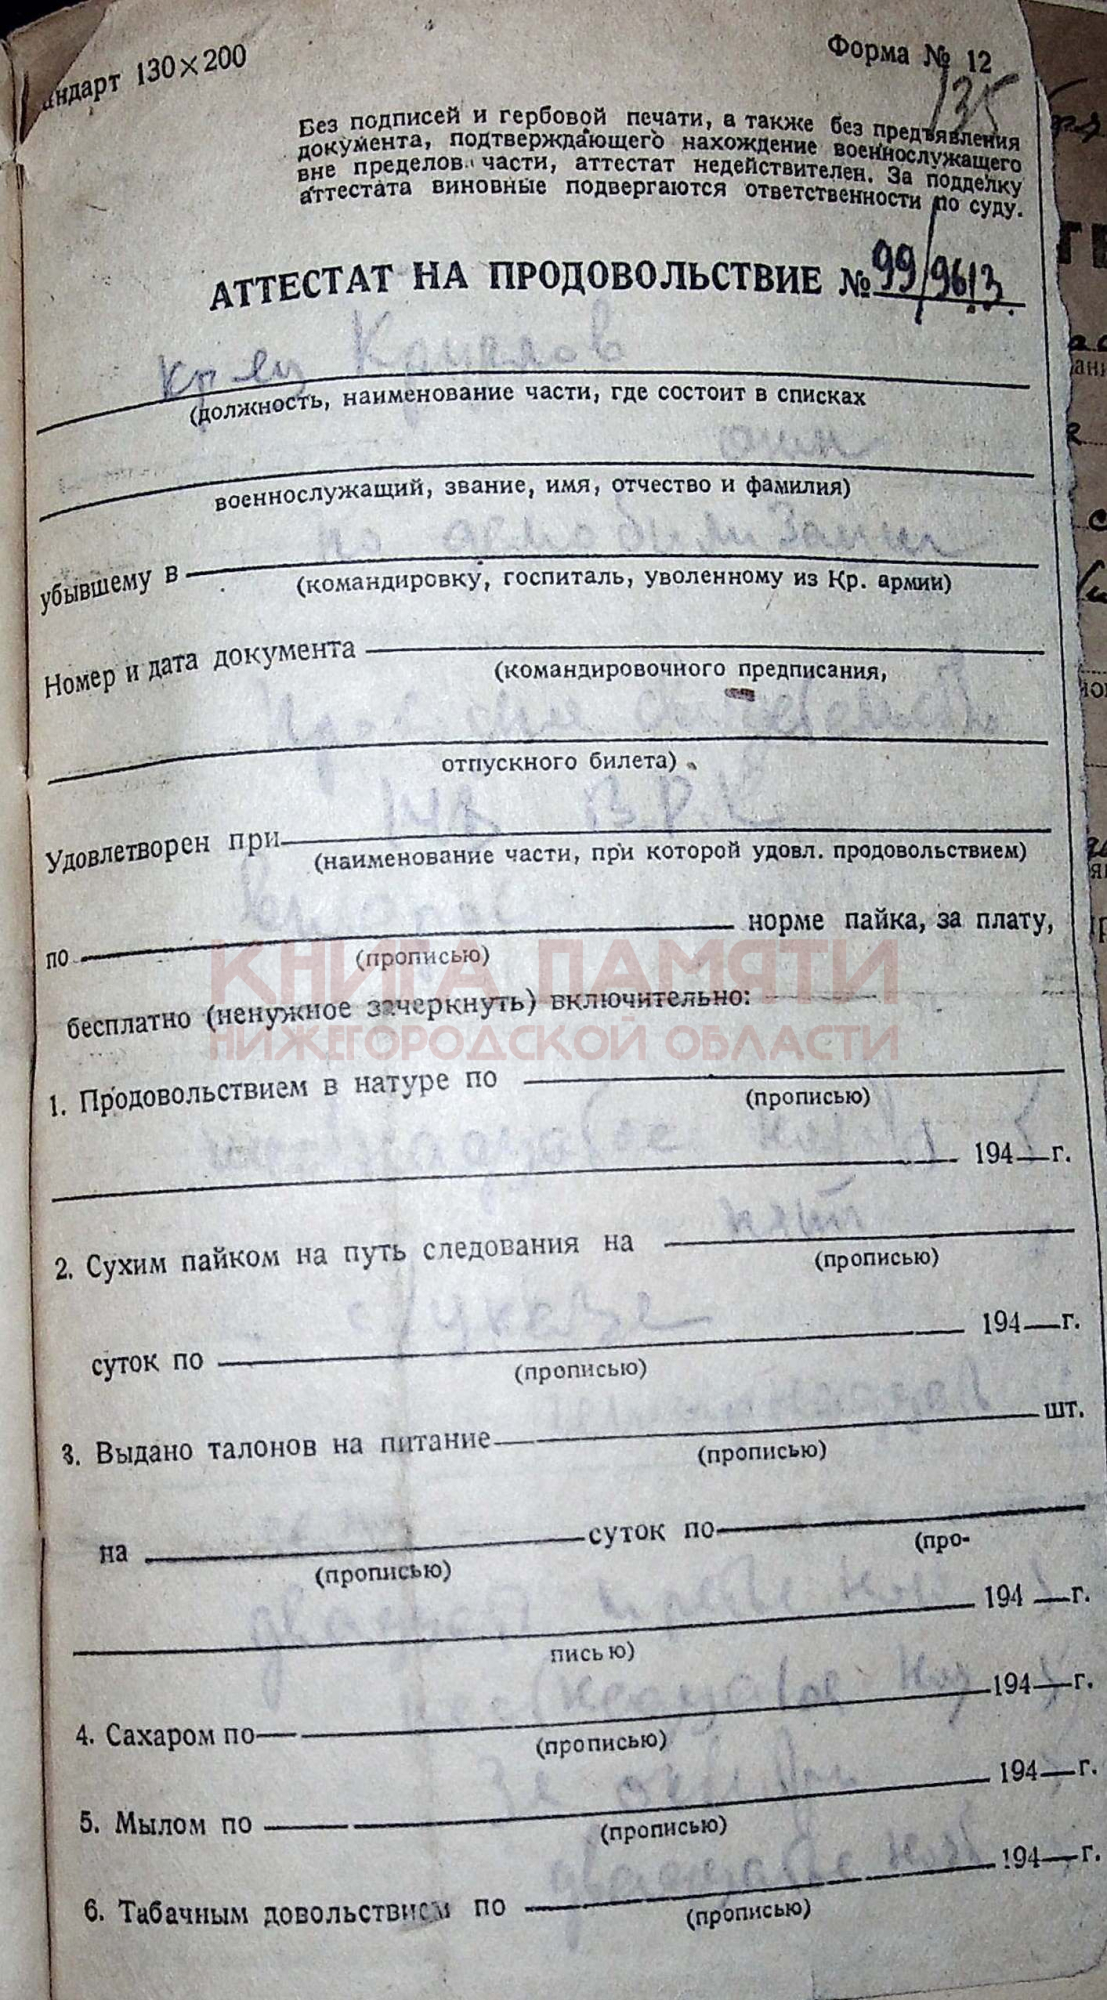 андарт 130×200
Форма № 12
135
Без подписей и гербовой печати, а также без предъявления
документа, подтверждающего нахождение военнослужащего
вне пределов части, аттестат недействителен. За подделку
аттестата виновные подвергаются ответственности по суду.
АТТЕСТАТ НА ПРОДОВОЛЬСТВИЕ № 99/9613
(должность, наименование части, где состоит в списках
один
военнослужащий, звание, имя, отчество и фамилия)
по демобилизации
убывшему в
(командировку, госпиталь, уволенному из Кр. армии)
Номер и дата документа
(командировочного предписания,
отпускного билета)
Удовлетворен при
(наименование части, при которой удовл. продовольствием)
по норме пайка, за плату,
(прописью)
КНИГА ПАМЯТИ
бесплатно (ненужное зачеркнуть) включительно:
НИЖЕГОРОДСКОЙ ОБЛАСТИ
1. Продовольствием в натуре по
(прописью)
194 г.
пять
2. Сухим пайком на путь следования на
(прописью)
суток по 194 г.
(прописью)
3. Выдано талонов на питание шт.
(прописью)
на суток по
(прописью) (про-
194 г.
писью)
4. Сахаром по 194 г.
(прописью)
5. Мылом по 194 г.
(прописью)
6. Табачным довольствием по 194 г.
(прописью)